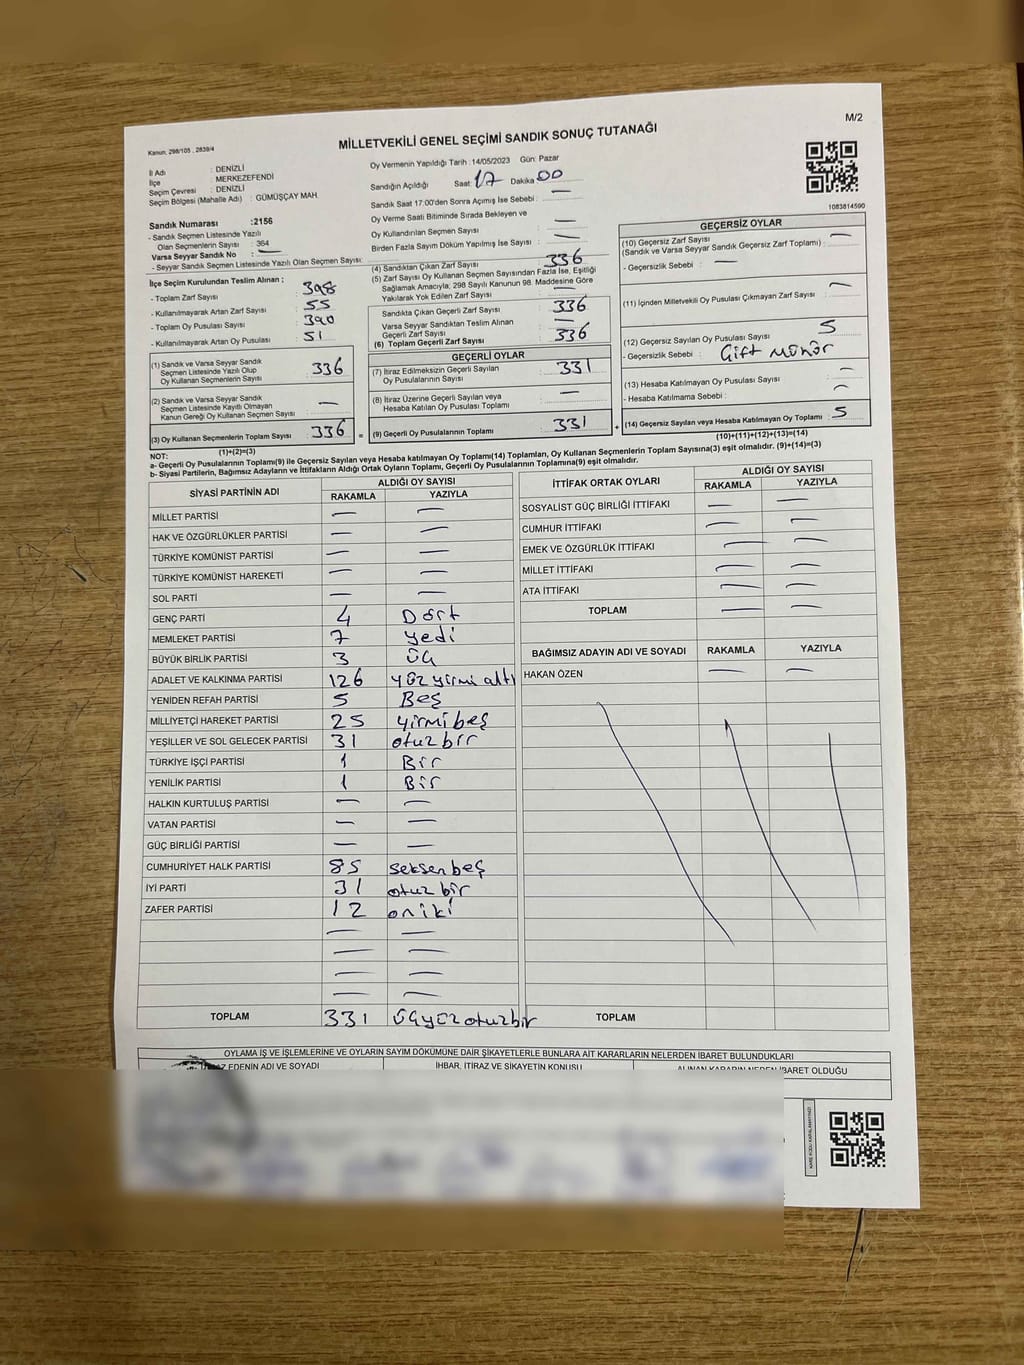 M/2
Kanun, 298/105 , 2839/4
MİLLETVEKİLİ GENEL SEÇİMİ SANDIK SONUÇ TUTANAĞI
İl Adı : DENİZLİ
İlçe MERKEZEFENDİ
Seçim Çevresi : DENİZLİ
Seçim Bölgesi (Mahalle Adı) : GÜMÜŞÇAY MAH
Sandık Numarası :2156
- Sandık Seçmen Listesinde Yazılı
Olan Seçmenlerin Sayısı : 364
Varsa Seyyar Sandık No : —
- Seyyar Sandık Seçmen Listesinde Yazılı Olan Seçmen Sayısı:
Oy Vermenin Yapıldığı Tarih :14/05/2023 Gün: Pazar
Sandığın Açıldığı Saat: 17 Dakika 00
Sandık Saat 17:00'den Sonra Açılmış İse Sebebi : —
Oy Verme Saati Bitiminde Sırada Bekleyen ve
Oy Kullandırılan Seçmen Sayısı : —
Birden Fazla Sayım Döküm Yapılmış İse Sayısı : —
1083814590
İlçe Seçim Kurulundan Teslim Alınan ;
- Toplam Zarf Sayısı : 398
- Kullanılmayarak Artan Zarf Sayısı : 55
- Toplam Oy Pusulası Sayısı : 390
- Kullanılmayarak Artan Oy Pusulası : 51
(1) Sandık ve Varsa Seyyar Sandık
Seçmen Listesinde Yazılı Olup
Oy Kullanan Seçmenlerin Sayısı : 336
(2) Sandık ve Varsa Seyyar Sandık
Seçmen Listesinde Kayıtlı Olmayan
Kanun Gereği Oy Kullanan Seçmen Sayısı : —
(3) Oy Kullanan Seçmenlerin Toplam Sayısı : 336
(1)+(2)=(3)
(4) Sandıktan Çıkan Zarf Sayısı : 336
(5) Zarf Sayısı Oy Kullanan Seçmen Sayısından Fazla İse, Eşitliği
Sağlamak Amacıyla; 298 Sayılı Kanunun 98. Maddesine Göre
Yakılarak Yok Edilen Zarf Sayısı : —
Sandıkta Çıkan Geçerli Zarf Sayısı : 336
Varsa Seyyar Sandıktan Teslim Alınan
Geçerli Zarf Sayısı : —
(6) Toplam Geçerli Zarf Sayısı : 336
GEÇERLİ OYLAR
(7) İtiraz Edilmeksizin Geçerli Sayılan
Oy Pusulalarının Sayısı : 331
(8) İtiraz Üzerine Geçerli Sayılan veya
Hesaba Katılan Oy Pusulası Toplamı : —
= (9) Geçerli Oy Pusulalarının Toplamı : 331
GEÇERSİZ OYLAR
(10) Geçersiz Zarf Sayısı : —
(Sandık ve Varsa Seyyar Sandık Geçersiz Zarf Toplamı)
- Geçersizlik Sebebi : —
(11) İçinden Milletvekili Oy Pusulası Çıkmayan Zarf Sayısı : —
(12) Geçersiz Sayılan Oy Pusulası Sayısı : 5
- Geçersizlik Sebebi : Çift mühür
(13) Hesaba Katılmayan Oy Pusulası Sayısı : —
- Hesaba Katılmama Sebebi : —
+ (14) Geçersiz Sayılan veya Hesaba Katılmayan Oy Toplamı : 5
(10)+(11)+(12)+(13)=(14)
NOT:
a- Geçerli Oy Pusulalarının Toplamı(9) ile Geçersiz Sayılan veya Hesaba Katılmayan Oy Toplamı(14) Toplamları, Oy Kullanan Seçmenlerin Toplam Sayısına(3) eşit olmalıdır. (9)+(14)=(3)
b- Siyasi Partilerin, Bağımsız Adayların ve İttifakların Aldığı Ortak Oyların Toplamı, Geçerli Oy Pusulalarının Toplamına(9) eşit olmalıdır.
SİYASİ PARTİNİN ADI ALDIĞI OY SAYISI
RAKAMLA YAZIYLA
MİLLET PARTİSİ — —
HAK VE ÖZGÜRLÜKLER PARTİSİ — —
TÜRKİYE KOMÜNİST PARTİSİ — —
TÜRKİYE KOMÜNİST HAREKETİ — —
SOL PARTİ — —
GENÇ PARTİ 4 Dört
MEMLEKET PARTİSİ 7 yedi
BÜYÜK BİRLİK PARTİSİ 3 üç
ADALET VE KALKINMA PARTİSİ 126 yüz yirmi altı
YENİDEN REFAH PARTİSİ 5 Beş
MİLLİYETÇİ HAREKET PARTİSİ 25 yirmi beş
YEŞİLLER VE SOL GELECEK PARTİSİ 31 otuz bir
TÜRKİYE İŞÇİ PARTİSİ 1 Bir
YENİLİK PARTİSİ 1 Bir
HALKIN KURTULUŞ PARTİSİ — —
VATAN PARTİSİ — —
GÜÇ BİRLİĞİ PARTİSİ — —
CUMHURİYET HALK PARTİSİ 85 seksen beş
İYİ PARTİ 31 otuz bir
ZAFER PARTİSİ 12 on iki
— —
— —
— —
— —
TOPLAM 331 üçyüz otuz bir
İTTİFAK ORTAK OYLARI ALDIĞI OY SAYISI
RAKAMLA YAZIYLA
SOSYALİST GÜÇ BİRLİĞİ İTTİFAKI — —
CUMHUR İTTİFAKI — —
EMEK VE ÖZGÜRLÜK İTTİFAKI — —
MİLLET İTTİFAKI — —
ATA İTTİFAKI — —
TOPLAM — —
BAĞIMSIZ ADAYIN ADI VE SOYADI RAKAMLA YAZIYLA
HAKAN ÖZEN — —
TOPLAM
OYLAMA İŞ VE İŞLEMLERİNE VE OYLARIN SAYIM DÖKÜMÜNE DAİR ŞİKAYETLERLE BUNLARA AİT KARARLARIN NELERDEN İBARET BULUNDUKLARI
EDENİN ADI VE SOYADI İHBAR, İTİRAZ VE ŞİKAYETİN KONUSU ALINAN KARARIN NEDEN İBARET OLDUĞU
KARE KODU KARALAMAYINIZ!